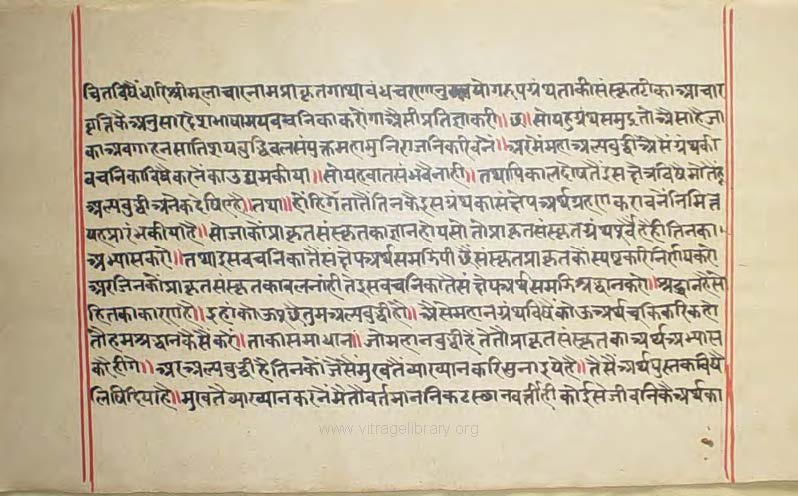 चितविषैंधारिश्रीमूलाचारनामप्राकृतगाथाबंधचरणानुयोगरूपग्रंथताकीसंस्कृतटीकाआचार
वृत्तिकैअनुसारदेशभाषामयवचनिकाकरोंगाऐसीप्रतिज्ञाकरी॥छ॥सोयहुग्रंथसमुद्रतोऐसाहैजा
काअवगाहनसातिशयबुद्धिबलसंयुक्तमहामुनिराजनिकरिबनें॥अरमैंमहाअल्पबुद्धीऐसेंग्रंथकी
वचनिकाविषैकरनेंकाउद्यमकीया॥सोयहबातसंभवैनाही॥तथापिकालदोषतैंइसक्षेत्रविषैमोतैंहू
अल्पबुद्धीअनेकदेषिएहै॥तथा॥होंहिगेंतातैंतिनकैइसग्रंथकासंक्षेपअर्थग्रहणकरावनेंनिमित्त
यहप्रारंभकीयाहै॥सोजाकोंप्राकृतसंस्कृतकाज्ञानहोयसोतोप्राकृतसंस्कृतग्रंथपूर्वैहैहीतिनका
अभ्यासकरो॥तथाइसवचनिकातैंसंक्षेपअर्थसमझिपीछैंसंस्कृतप्राकृतकोंस्पष्टकरिनिर्णयकरो
अरजिनकोंप्राकृतसंस्कृतकाबलनांहीतेइसवचनिकातैंसंक्षेपअर्थसमझिश्रद्धानकरो॥श्रद्धानहैसो
हितकाकारणहै॥इहांकोऊपूछैतुमअल्पबुद्धीहो॥ऐसेमहानग्रंथविषैंकोऊअर्थचूकिकरिकहो
तौहमश्रद्धानकैसैंकरें॥ताकासमाधान॥जोमहानबुद्धीहैतेतौप्राकृतसंस्कृतकाअर्थअभ्यास
करेहींगे॥अरअल्पबुद्धीहैतिनकोंजैसैंमुखतैंव्याख्यानकरिसुनाइयेहै॥तैसैंअर्थपुस्तकविषै
लिपिदियाहै॥मुखतैव्याख्यानकरनेंमैतौवर्तमाननिकटस्थानवर्त्तीहीकोईसेजीवनिकैअर्थका
www.vitragelibrary.org